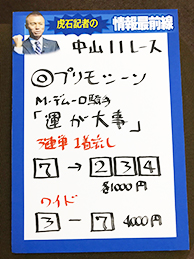 虎石記者の
情報最前線
中山11レース
◎プリモシーン
M・デムーロ騎手
「運が大事」
3連単1着流し
7→2 3 4
各1000円
ワイド
3-7 4000円